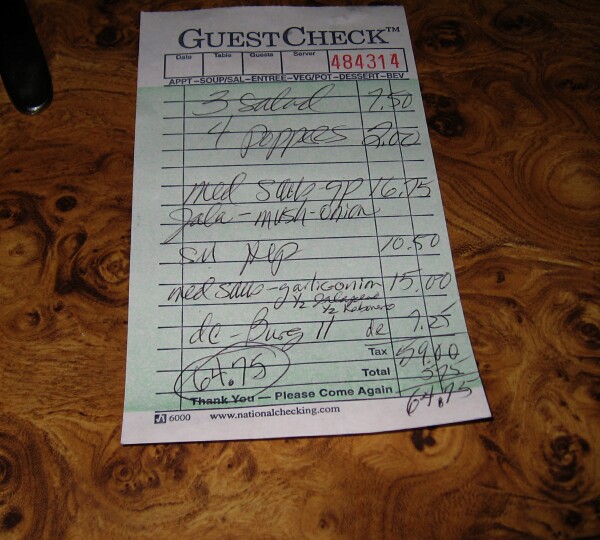 GUESTCHECK™
Date Table Guests Server 484314
APPT-SOUP/SAL-ENTREE-VEG/POT-DESSERT-BEV
3 salad 7.50
4 poppers 2.00
med saus-gp 16.75
Jala-mush-onion
sm pep 10.50
med saus-garlic-onion 15.00
1/2 Jalapeno
1/2
dc - Burg 11 dc 7.25
Tax 59.00
Total 5.75
64.75 64.75
Thank You — Please Come Again
6000 www.nationalchecking.com